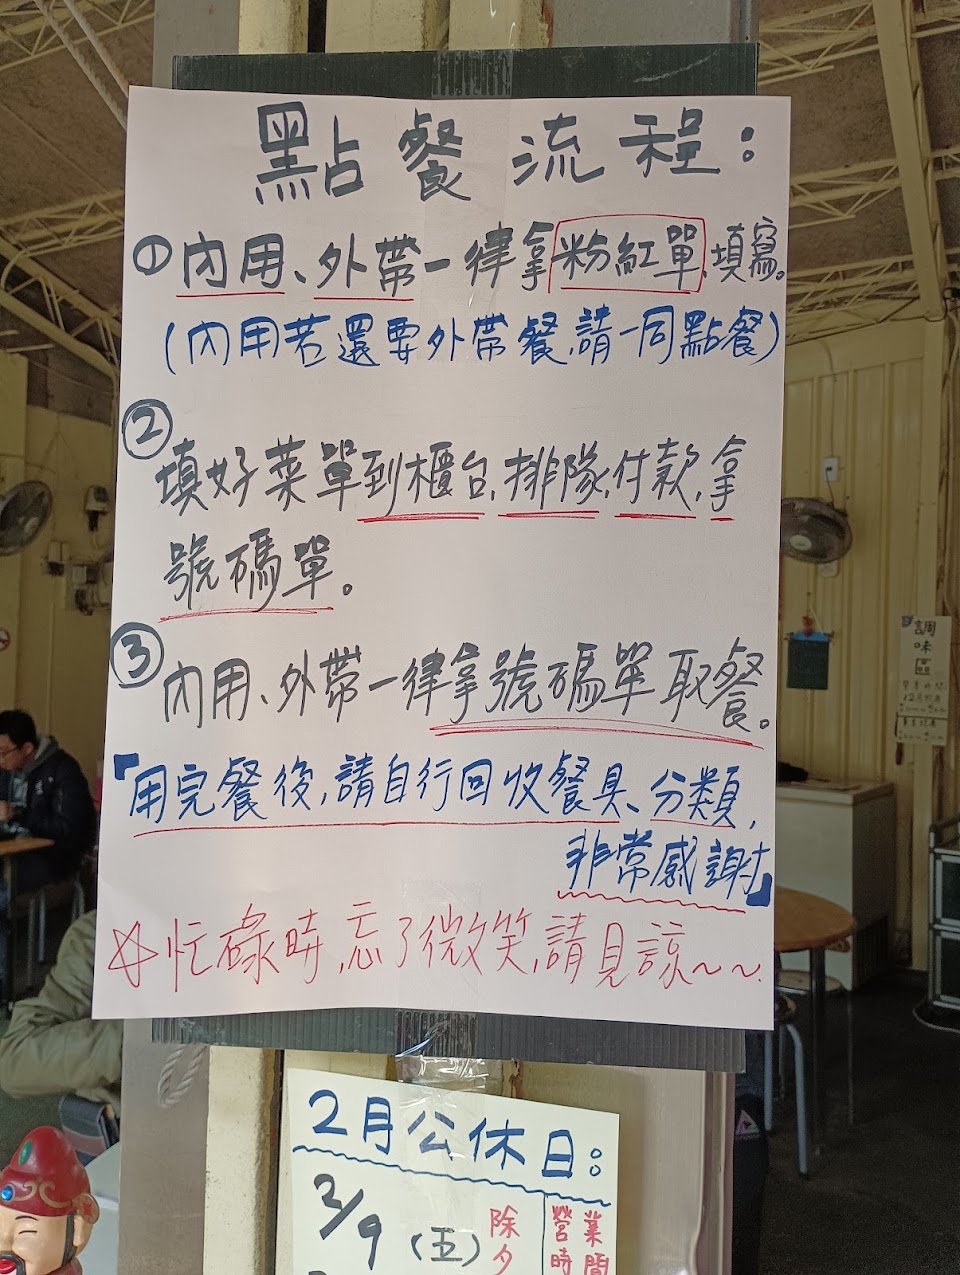 點餐流程：
①內用、外帶一律拿粉紅單，填寫。
（內用若還要外帶餐，請一同點餐）
②
填好菜單到櫃台，排隊，付款，拿
號碼單。
③內用、外帶一律拿號碼單取餐。
『用完餐後，請自行回收餐具、分類，
非常感謝』
☆忙碌時，忘了微笑，請見諒～～.
2月公休日：
2/9（五）除夕
營業時間
調味區